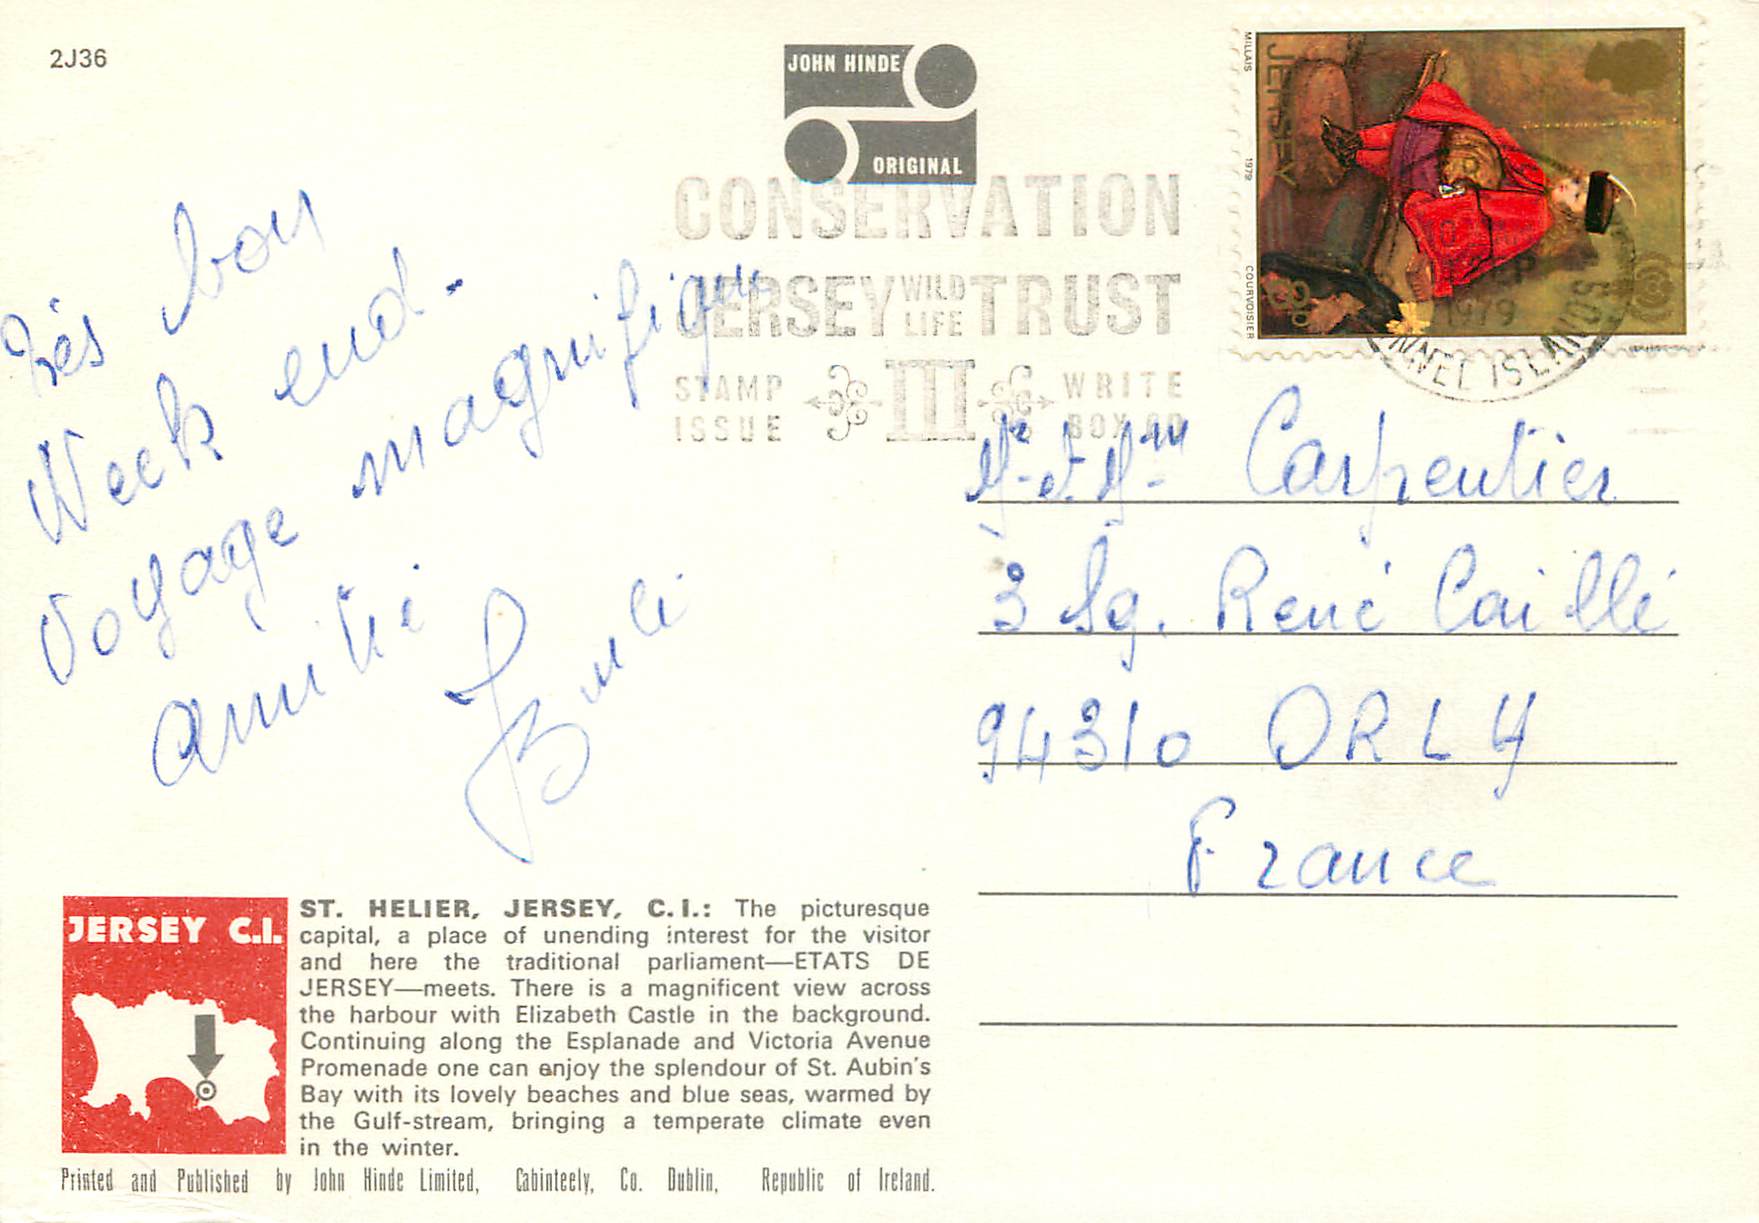 2J36
JOHN HINDE
ORIGINAL
CONSERVATION
JERSEY WILD LIFE TRUST
STAMP ISSUE III WRITE BOX
MILLAIS
1979
COURVOISIER
JERSEY
8p
1979
NNEL ISLAN
très bon
Week end.
Voyage magnifique
amitié
Mr et Mme Carpentier
3 Sq. René Caillé
94310 ORLY
France
JERSEY C.I.
ST. HELIER, JERSEY, C.I.: The picturesque
capital, a place of unending interest for the visitor
and here the traditional parliament—ETATS DE
JERSEY—meets. There is a magnificent view across
the harbour with Elizabeth Castle in the background.
Continuing along the Esplanade and Victoria Avenue
Promenade one can enjoy the splendour of St. Aubin's
Bay with its lovely beaches and blue seas, warmed by
the Gulf-stream, bringing a temperate climate even
in the winter.
Printed and Published by John Hinde Limited, Cabinteely, Co. Dublin, Republic of Ireland.